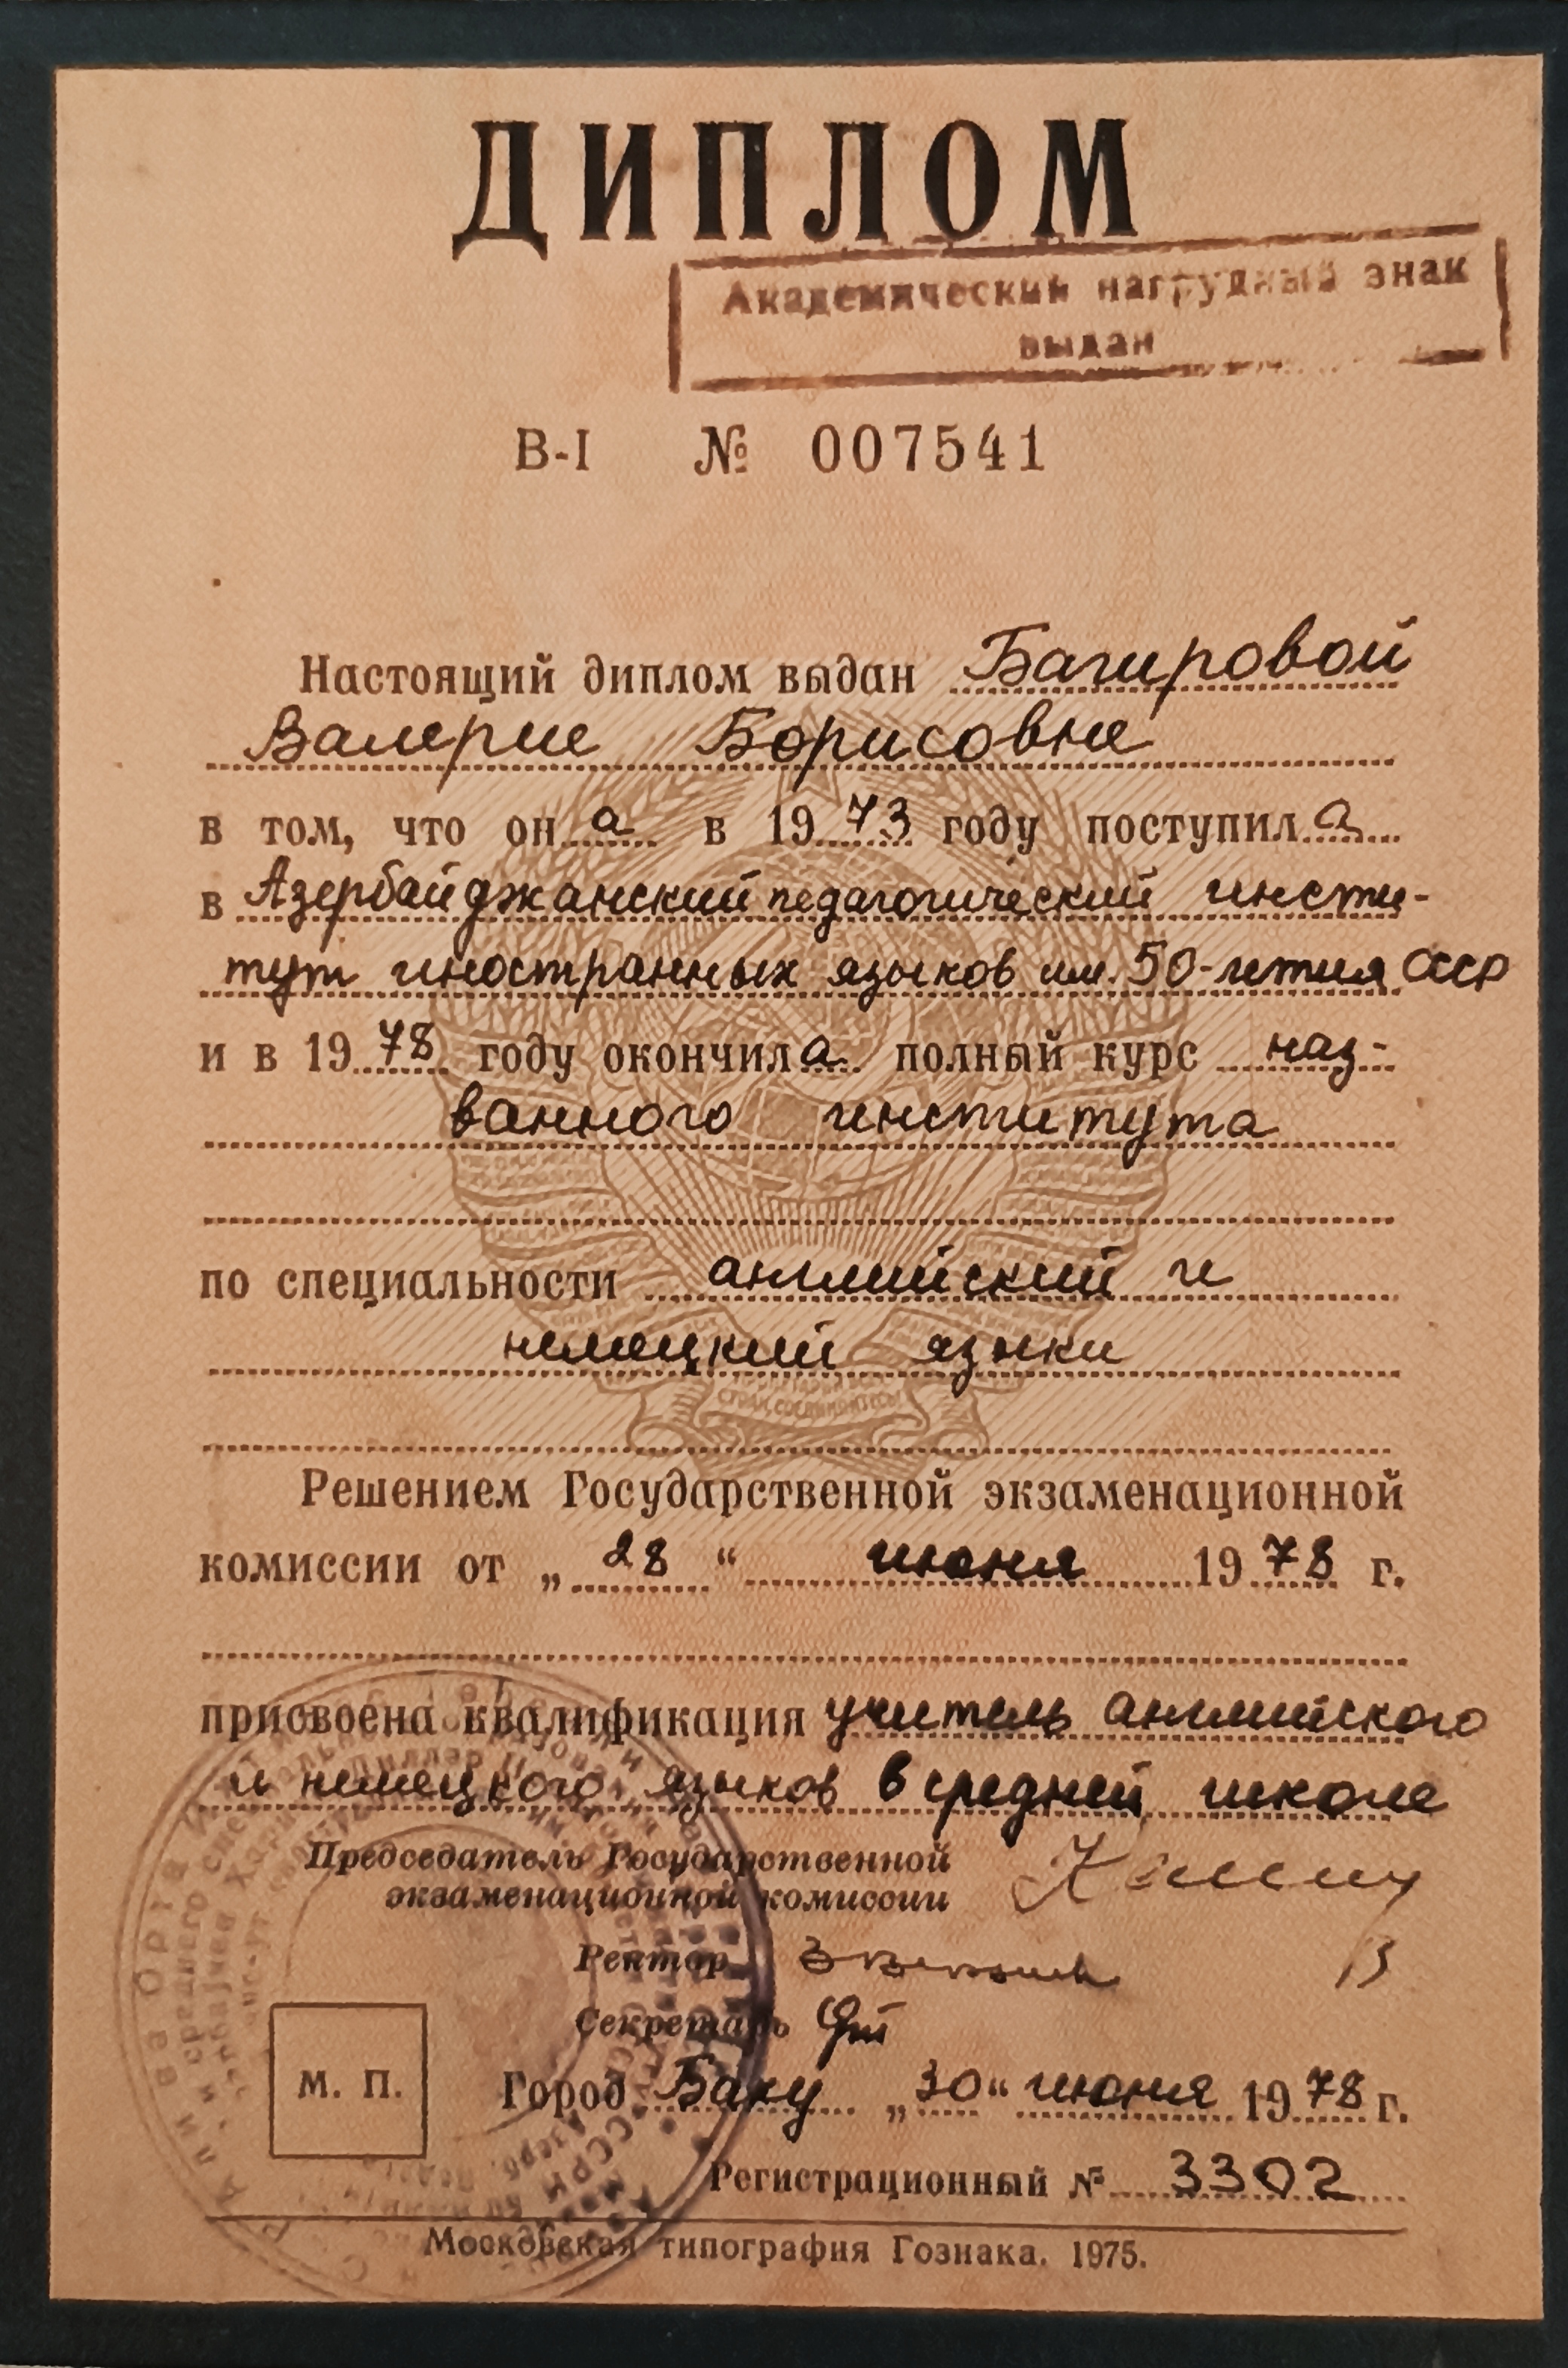 ДИПЛОМ
Академический нагрудный знак
выдан
В-I № 007541
Настоящий диплом выдан Багировой
Валерие Борисовне
в том, что он а в 1973 году поступил а
в Азербайджанский педагогический инсти-
тут иностранных языков им. 50-летия СССР
и в 1978 году окончил а полный курс наз-
ванного института
по специальности английский и
немецкий языки
СТРАН, СОЕДИНЯЙТЕСЬ!
Решением Государственной экзаменационной
комиссии от „28“ июня 1978 г.
присвоена квалификация учитель английского
и немецкого языков в средней школе
Председатель Государственной
экзаменационной комиссии
Ректор
Секретарь
М. П.
Город Баку „30“ июня 1978 г.
Регистрационный № 3302
Московская типография Гознака. 1975.